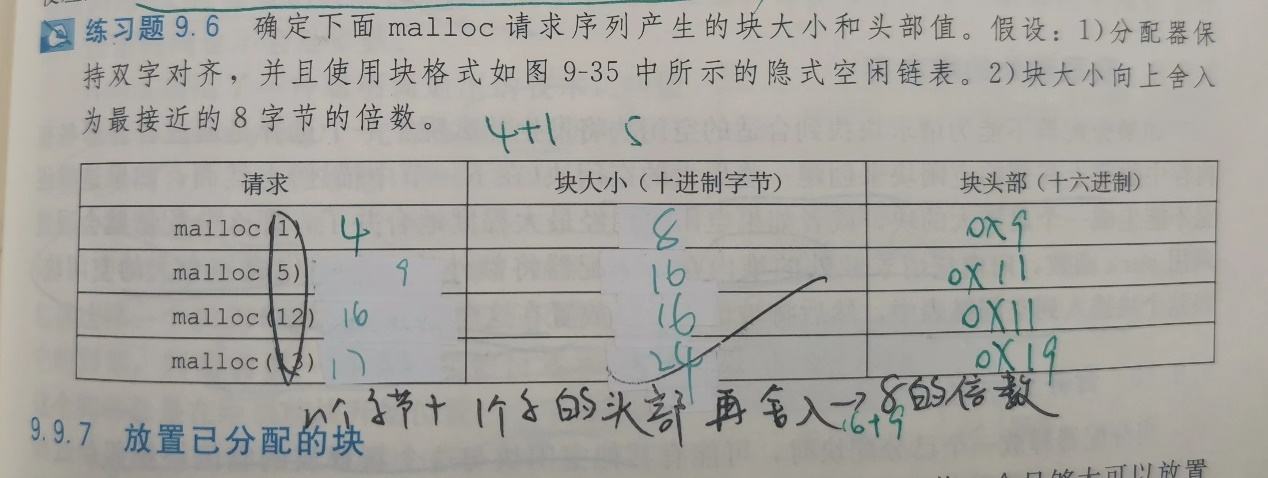 练习题 9.6 确定下面 malloc 请求序列产生的块大小和头部值。假设：1)分配器保
持双字对齐，并且使用块格式如图 9-35 中所示的隐式空闲链表。2)块大小向上舍入
为最接近的 8 字节的倍数。
4+1 5
请求 块大小（十进制字节） 块头部（十六进制）
malloc(1) 4 8 0x9
malloc(5) 9 16 0x11
malloc(12) 16 16 0x11
malloc(13) 17 24 0x19
n个字节+1个字的头部再舍入→8的倍数
16+9
9.9.7 放置已分配的块